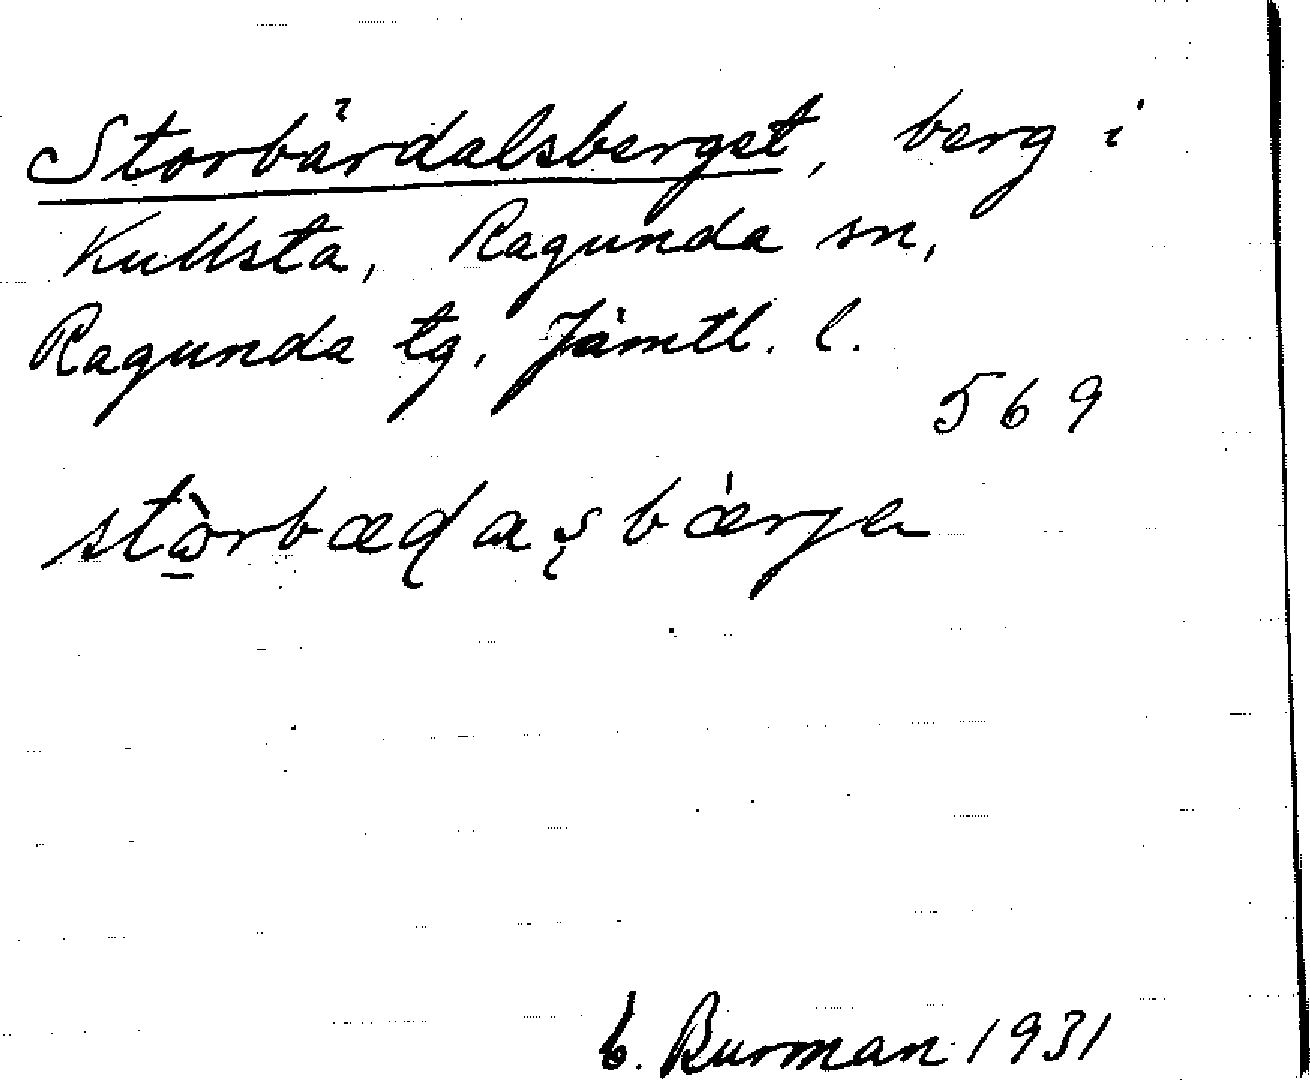 Storbärdalsberget, berg i
Kullsta, Ragunda sn,
Ragunda tg, Jämtl. l.
569
stɷ̠̀rbæɖaʂbǽrje
Burman 1931